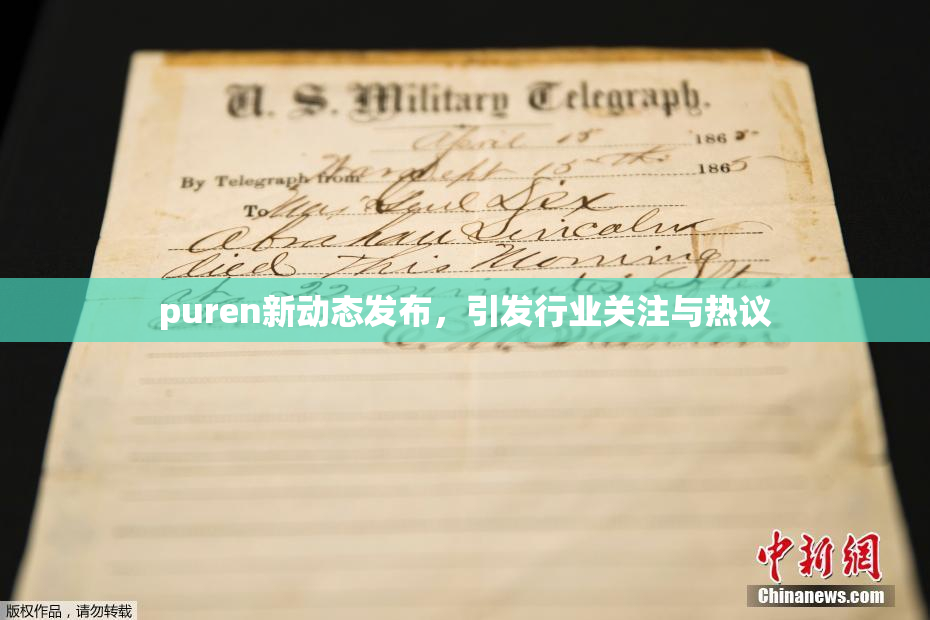 U. S. Military Telegraph.
April 15 1865
By Telegraph from War Dept 15th 1865
To Maj Genl Dix
Abraham Lincoln
died This Morning
at 22 minutes after
puren新动态发布，引发行业关注与热议
中新网
Chinanews.com
版权作品，请勿转载